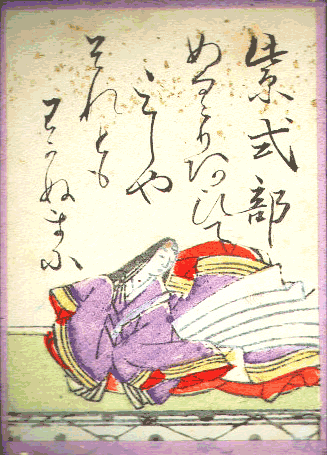 紫式部
めくりあひて
みしや
それとも
わかぬまに